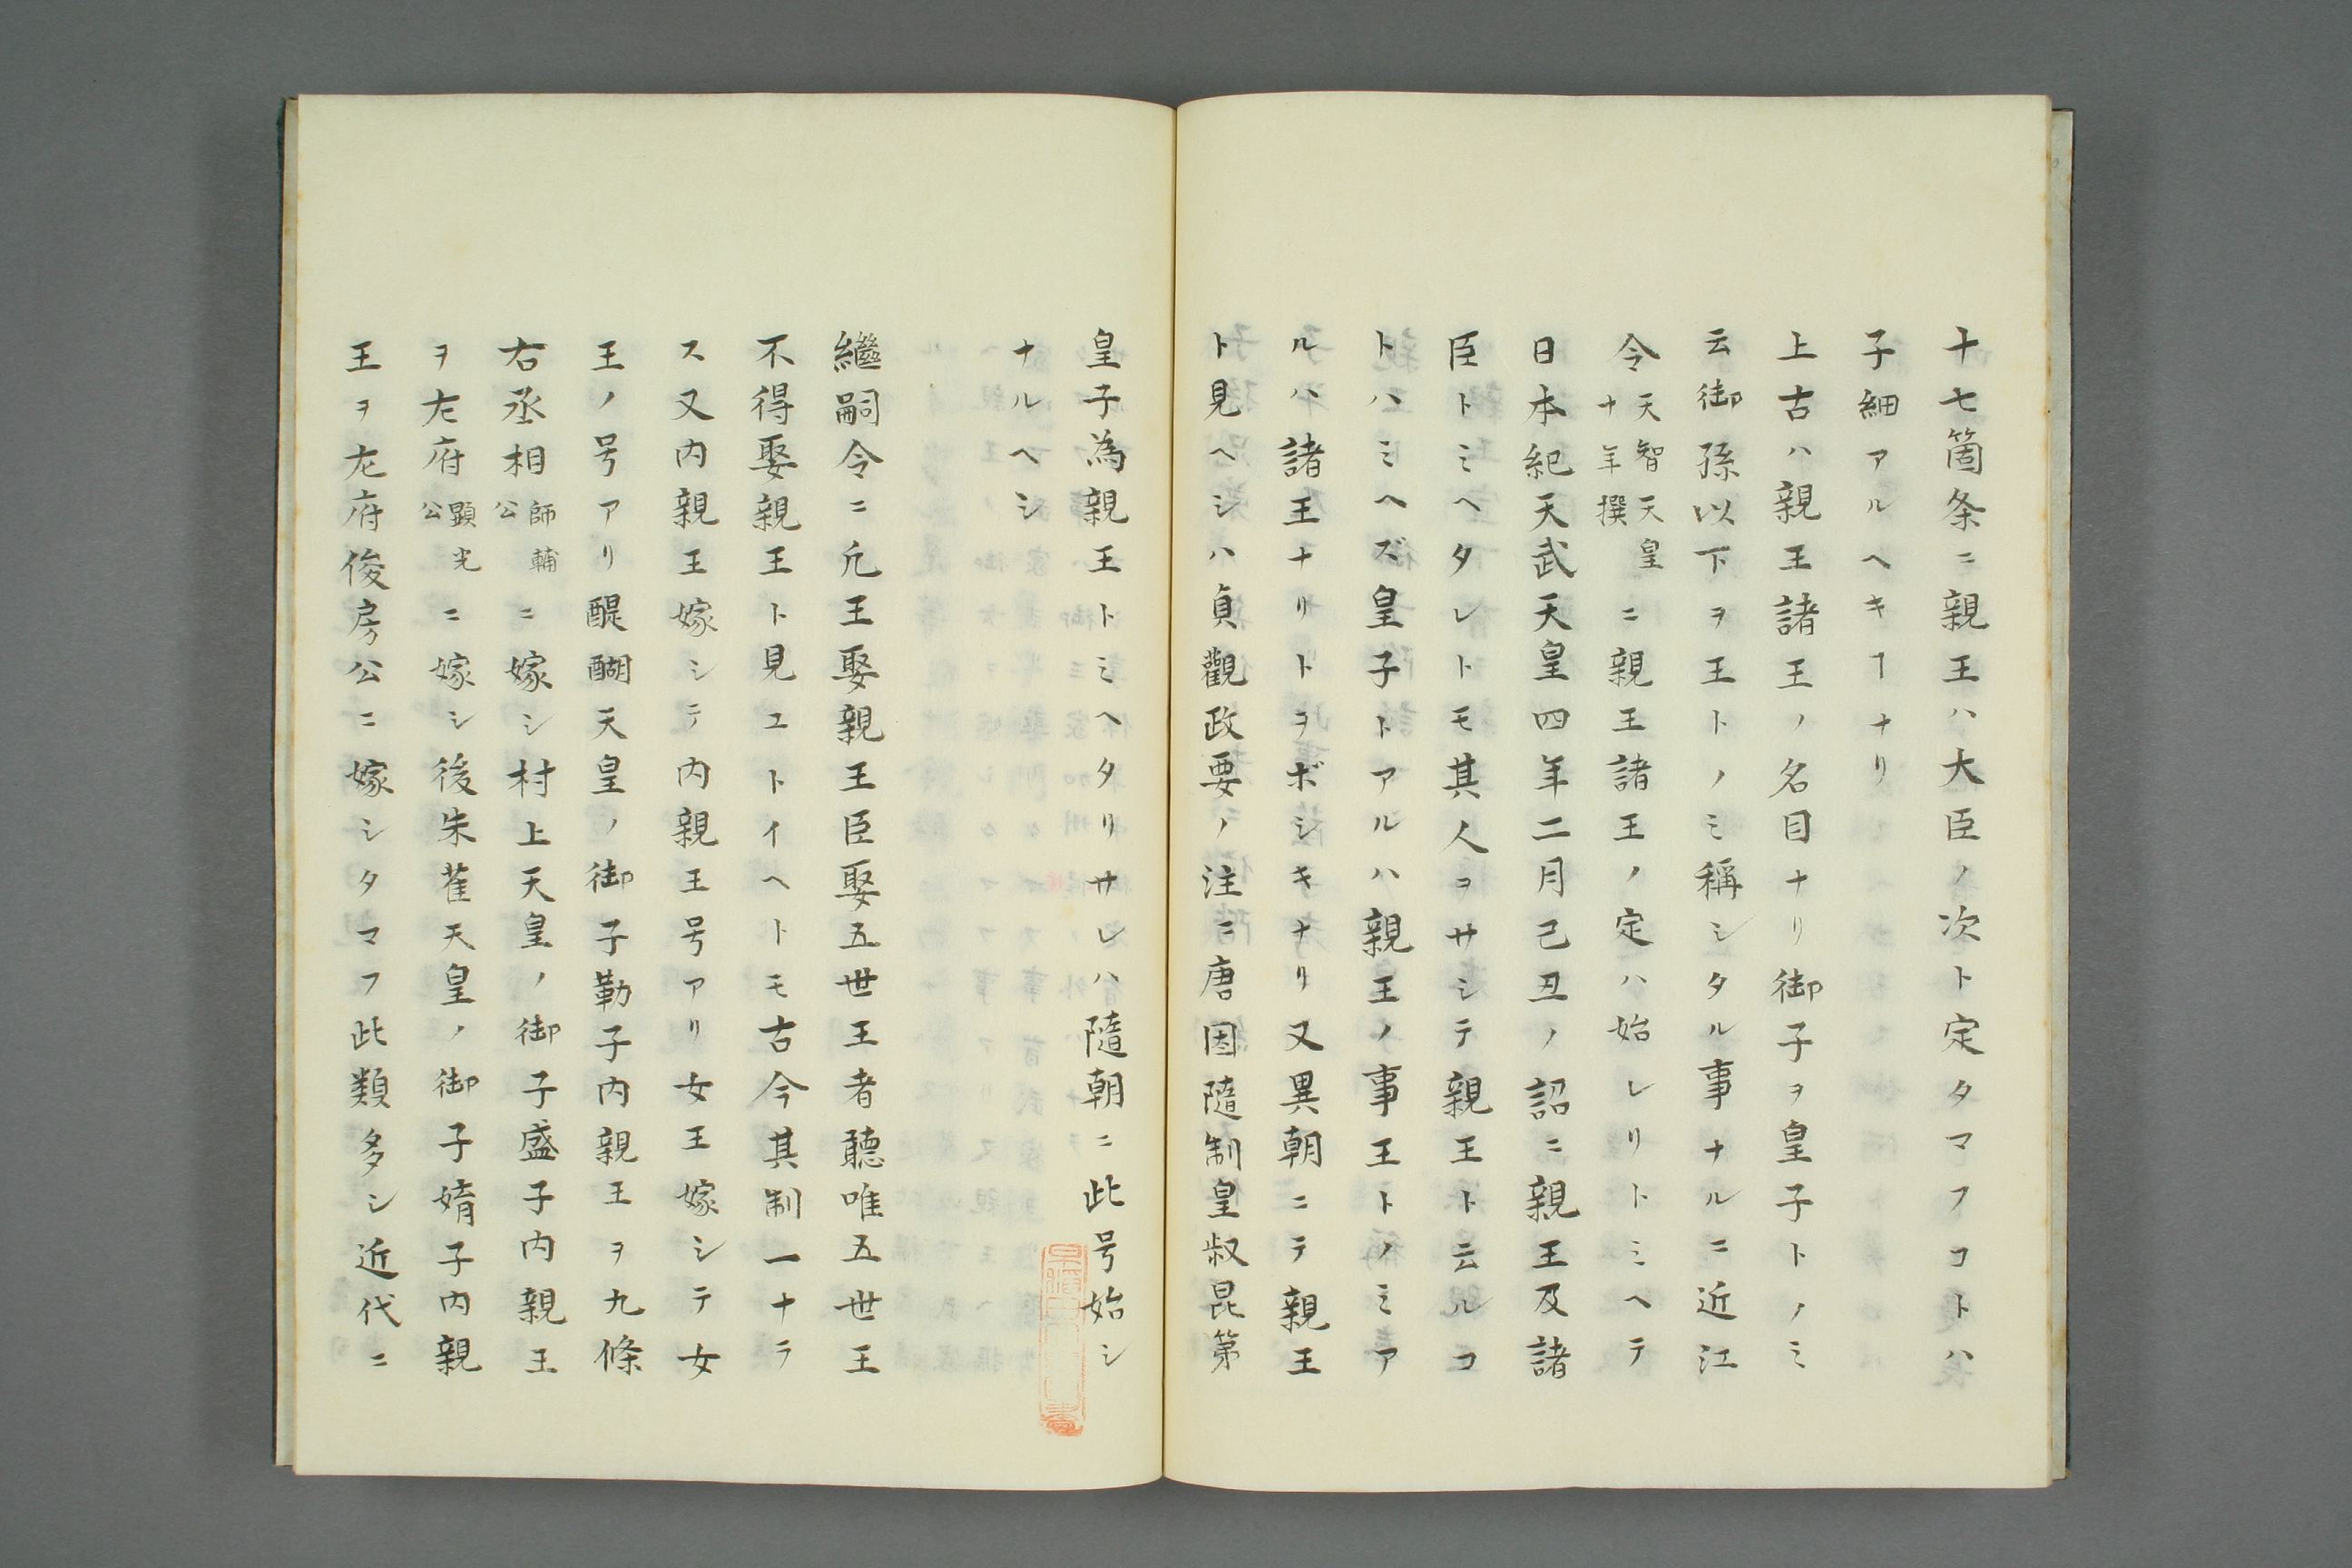 十七箇条ニ親王ハ大臣ノ次ト定タマフコトハ
子細アルヘキヿナリ
上古ハ親王諸王ノ名目ナリ御子ヲ皇子トノミ
云御孫以下ヲ王トノミ稱シタル事ナルニ近江
令天智天皇十年撰ニ親王諸王ノ定ハ始レリトミヘテ
日本紀天武天皇四年二月己丑ノ詔ニ親王及諸
臣トミヘタレトモ其人ヲサシテ親王ト云ルコ
トハミヘズ皇子トアルハ親王ノ事王トノミア
ルハ諸王ナリトヲボシキナリ又異朝ニテ親王
ト見ヘシハ貞觀政要ノ注ニ唐因隨制皇叔昆第
皇子為親王トミヘタリサレハ隨朝ニ此号始シ
ナルヘシ
繼嗣令ニ凢王娶親王臣娶五世王者聽唯五世王
不得娶親王ト見ユトイヘトモ古今其制一ナラ
ス又内親王嫁シテ内親王号アリ女王嫁シテ女
王ノ号アリ醍醐天皇ノ御子勤子内親王ヲ九條
右丞相師輔公ニ嫁シ村上天皇ノ御子盛子内親王
ヲ左府顕光公ニ嫁シ後朱雀天皇ノ御子媋子内親
王ヲ左府俊房公ニ嫁シタマフ此類多シ近代ニ